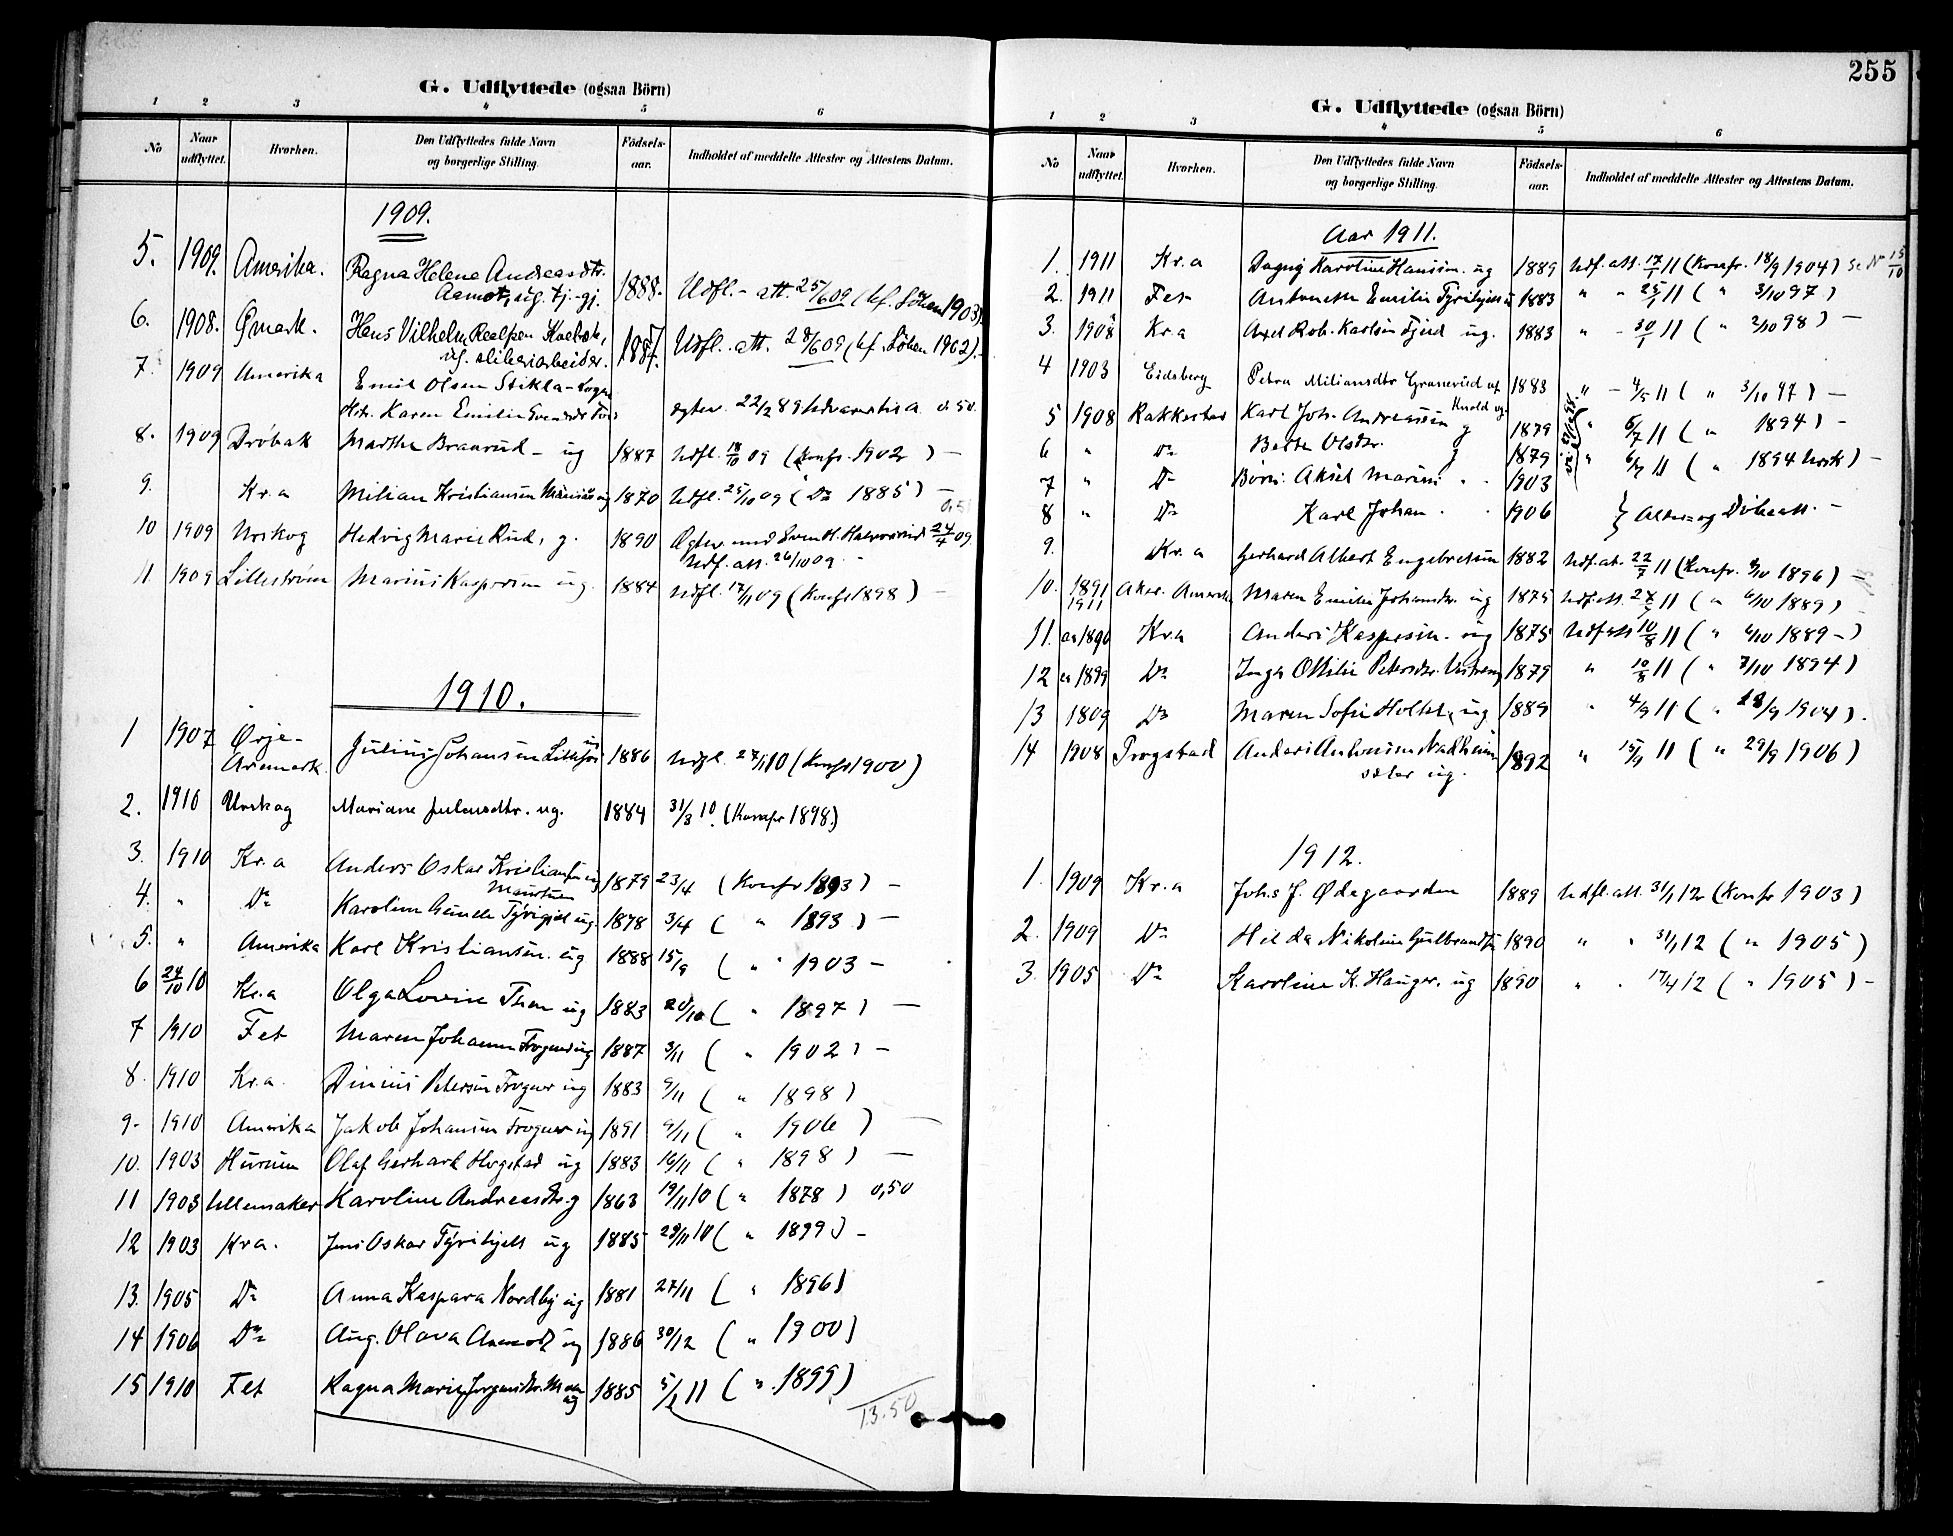 G. Udflyttede (ogsaa Börn)
1 2 3 4 5 6
No Naar udflyttet. Hvorhen. Den Udflyttedes fulde Navn og borgerlige Stilling. Födsels-aar. Indholdet af meddelte Attester og Attestens Datum.
1909.
5. 1909. Amerika. Ragna Helene Andreasdtr. 1888. Udfl.- att. 25/6 09 (kf. Löken 1903).
Aamot, ug. tj.-gj.
6. 1908. Ømark. Hans Vilhelm 1887. Udfl. att. 28/6 09 (kf. Löken 1902).-
ug.
7. 1909 Amerika Emil Olsen Stikla-
Hst. Karen Emilie egtev. 22/2 89 0.50.
8. 1909 Dröbak Marthe Braarud - ug 1887 Udfl. 18/10 09 (Konfr. 1902) -
9. Kr.a Milian Kristiansen ug 1870 Udfl. 25/10 09 (Do 1885) -
10 1909 Urskog Hedvig Marie Rud, g. 1890 Egtev. med Even H. 24/4 09
Udf. att. 26/10 09 -
11. 1909 Lilleström Marius Kaspersen ug. 1884 Udfl. 17/11 09 (Konfr 1898) -
1910.
1 1907 Ørje- Julius Johansen ug 1886 Udfl. 27/1 10 (Konfr 1900)
Aremark
2. 1910 Urskog Mariane Julensdtr. ug. 1884 31/3 10. (Konfr 1898.)
3. 1910 Kr.a Anders Oskar Kristiansen ug 1879 23/4 (Konfr 1893) -
4. " Do Karoline Gunda ug. 1878 3/4 ( " 1893) -
5. " Amerika Karl Kristiansen. ug 1888 15/9 ( " 1903 -
6 24/10 10 Kr.a Olga Lovise Thon ug 1883 20/10 ( " 1897) -
7 1910 Fet Maren Johanne Trogner ug 1887 3/11 ( " 1902) -
8. 1910 Kr.a. Dinius Petersen Trogner ug 1883 9/11 ( " 1898)
9- 1910 Amerika Jakob Johansen Trogner ug 1891 9/11 ( " 1906) -
10. 1903 Hurum Olaf Gerhard Hogstad ug 1883 16/11 ( " 1898) -
11 1903 Ullensaker Karoline Andreasdtr. g 1863 19/11 10 ( " 1878) 0,50
12 1903 Kra. Jens Oskar Tyrihjell ug 1885 29/11 10 ( " 1899) -
13. 1905 Do Anna Kaspara Nordby ug 1881 27/11 ( " 1896)
14 1906 Do Aug. Olava Aamodt ug 1886 30/12 ( " 1900)
15 1910 Fet Ragna Marie Jörgensdtr. ug 1885 5/1 11 ( " 1899)
13.50
255
G. Udflyttede (ogsaa Börn)
1 2 3 4 5 6
No Naar udflyttet. Hvorhen. Den Udflyttedes fulde Navn og borgerlige Stilling. Födsels-aar. Indholdet af meddelte Attester og Attestens Datum.
Aar 1911.
1. 1911 Kr.a Dagny Karoline Hansen. ug 1889 Udf. att. 17/1 11 (Konfr. 18/9 1904) Se No 15/10
2. 1911 Fet Antonette Emilie Tyrihjell ug 1883 " - 25/1 11 ( " 3/10 97)
3. 1908 Kr.a Axel Rob. Karlsen Fjeld ug. 1883 " - 30/1 11 ( " 2/10 98) -
4 1903 Eidsberg Petra Miliansdtr Granerud 1883 " - 4/5 11 ( " 3/10 97) -
5 1908 Rakkestad Karl Joh. Andreassen g 1879 " 6/7 11 ( " 1894) -
6 " Do Berte Olsdtr. g 1879 " 6/7 11 ( " 1894 Ursk) -
7 " Do Börn: Aksel Marius . . 1903
8 " Do Karl Johan . . 1906 } Alder- og Dåbsatt. -
9. Kr.a Gerhard Albert Engebretsen 1882 Udf. at. 22/7 11 (Konfr. 1896) -
10. 1891 Aker. Amerika Maren Emilie Johansdtr. ug 1875 Udf. att. 27/7 11 ( " 6/10 1889)
1911
11. ca 1890 Kr.a Anders Kaspersen. ug 1875 Udf att 10/8 11 ( " 6/10 1889-)
12 ca 1899 Do Inga Othilie Petersdtr. 1879 " 10/8 11 ( " 7/10 1894)
13 1809 Do Maren Sofie Holtet, ug 1889 " 4/9 11 ( " 18/9 1904).
14 1908 Trøgstad Anders Antonius 1892 " 15/9 11 ( " 29/9 1906)
ug.
1912.
1. 1909 Kr.a Johs J. Ødegaarden 1889 Udfl. att. 31/1 12 (Konfr 1903)
2. 1909 Do Hilda Nikoline Gulbrandsen 1890 " " 31/1 12 ( " 1905)
3. 1905 Do Karoline K. Hauger. ug 1890 " . 17/4 12 ( " 1905) -